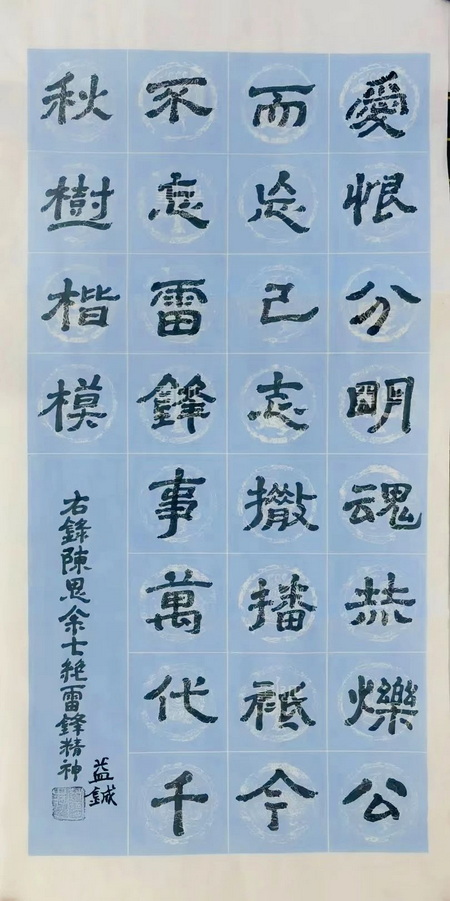 愛恨分明魂恭爍公
而忘己志撒播祇今
不忘雷鋒事萬代千
秋樹楷模
右錄陳思余七絕雷鋒精神
益鋮